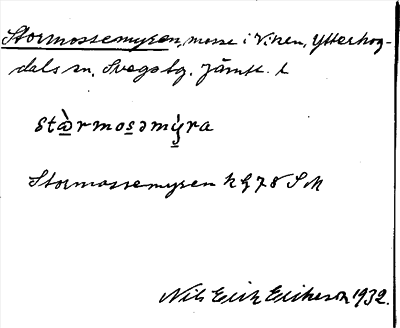 Stormossemyren, mosse i Viken, Ytterhog-
dals sn, Svegs tg. Jämtl. l
stὼrmosəmýra
Stormossemyren h G 78 S M
Nils Erik Eriksson 1932.